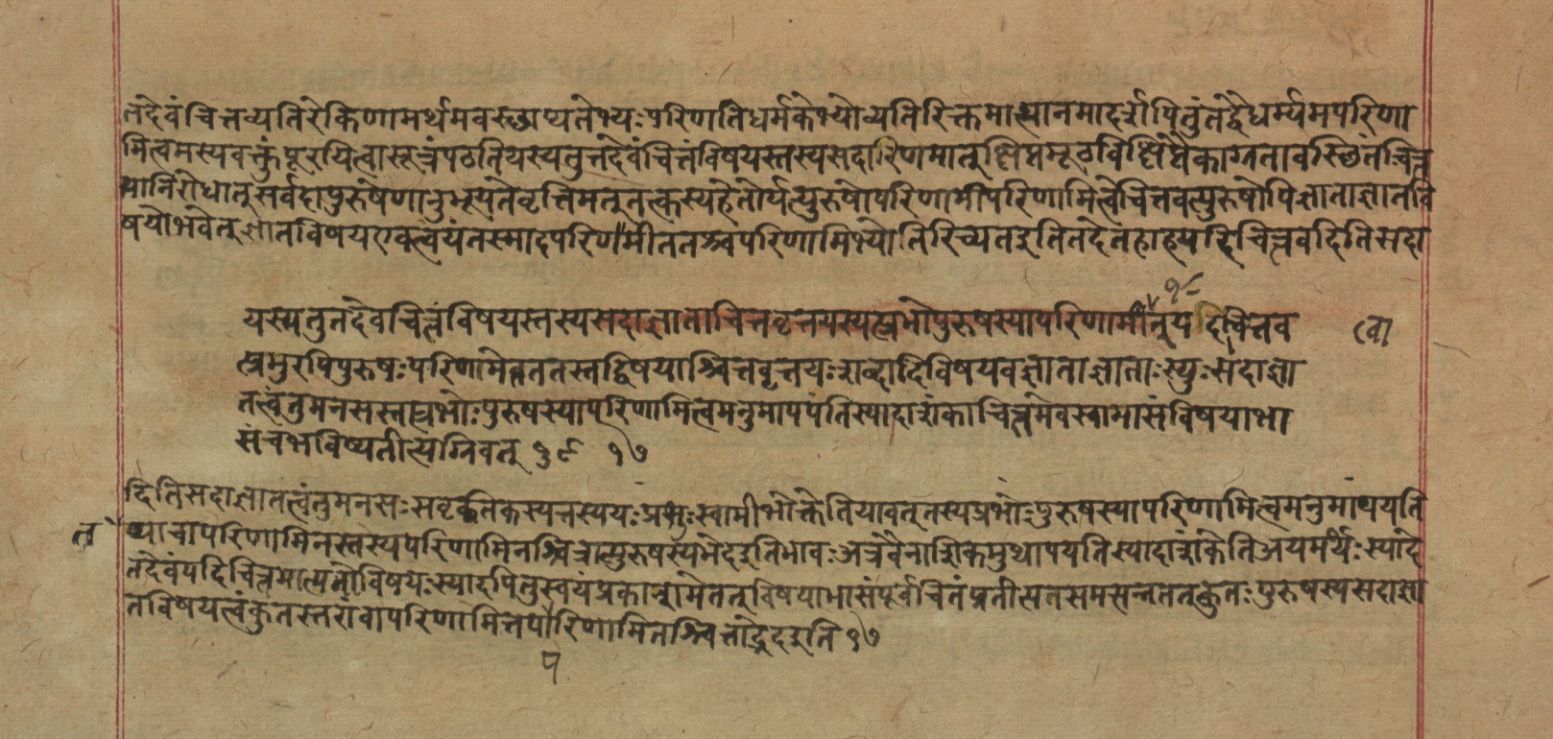 तदेवंचित्तव्यतिरेकिणामर्थमवस्थाप्यतेभ्यःपरिणतिधर्मकेभ्योव्यतिरिक्तमात्मानमादर्शयितुंतद्वैधर्म्यमपरिणा
मित्वमस्यवक्तुंपूरयित्वासूत्रंपठतियस्यतुत्तदेवंचित्तंविषयस्तस्यसदारिणमात्तुक्षिप्तमूढविक्षिप्तैकाग्रतावस्थितंचित्त
मानिरोधात्सर्वदापुरुषेणानुभूयतेवृत्तिमत्तत्कस्यहेतोर्यत्पुरुषोपरिणामीपरिणामित्वेचित्तवत्पुरुषोपिज्ञाताज्ञातवि
षयोभवेत्ज्ञातविषयएवत्वयंतस्मादपरिणामीततश्चपरिणामिभ्योतिरिच्यतइतितदेतदाहयदिचित्तवदितिसदा
यस्यतुतदेवचित्तंविषयस्तस्यसदाज्ञाताचित्तवृत्तयस्यत्प्रभोपुरुषस्यापरिणामीत्वात् १८ यदिचित्तव
त्प्रभुरपिपुरुषःपरिणामेत्ततस्तद्विषयाश्चित्तवृत्तयःशब्दादिविषयवज्ञाताज्ञाताःस्युःसदाज्ञा
तत्वंतुमनसस्तत्प्रभोःपुरुषस्यापरिणामित्वमनुमापयतिस्यादाशंकाचित्तमेवस्वाभासंविषयाभा
संचभविष्यतीत्यग्निवत् ३९ १७
दितिसदाज्ञातत्वंतुमनसःसवृत्तिकस्यतस्ययःप्रभुःस्वामीभोक्तेतियावत्तस्यप्रभोःपुरुषस्यापरिणामित्वमनुमापयति
तथाचापरिणामिनस्तस्यपरिणामिनश्चित्तात्पुरुषस्यभेदइतिभावःअत्रवैनाशिकमुत्थापयतिस्यादाशंकेतिअयमर्थःस्यादे
तदेवंयदिचित्तमात्मनोविषयःस्यादपितुस्वयंप्रकाशमेतत्विषयाभासंपूर्वचित्तंप्रतीत्यसमुत्पन्नंतत्कुतःपुरुषस्यसदाज्ञा
तविषयत्वंकुतस्तरांवापरिणामितयापरिणामिनश्चित्ताद्भेदइति १७